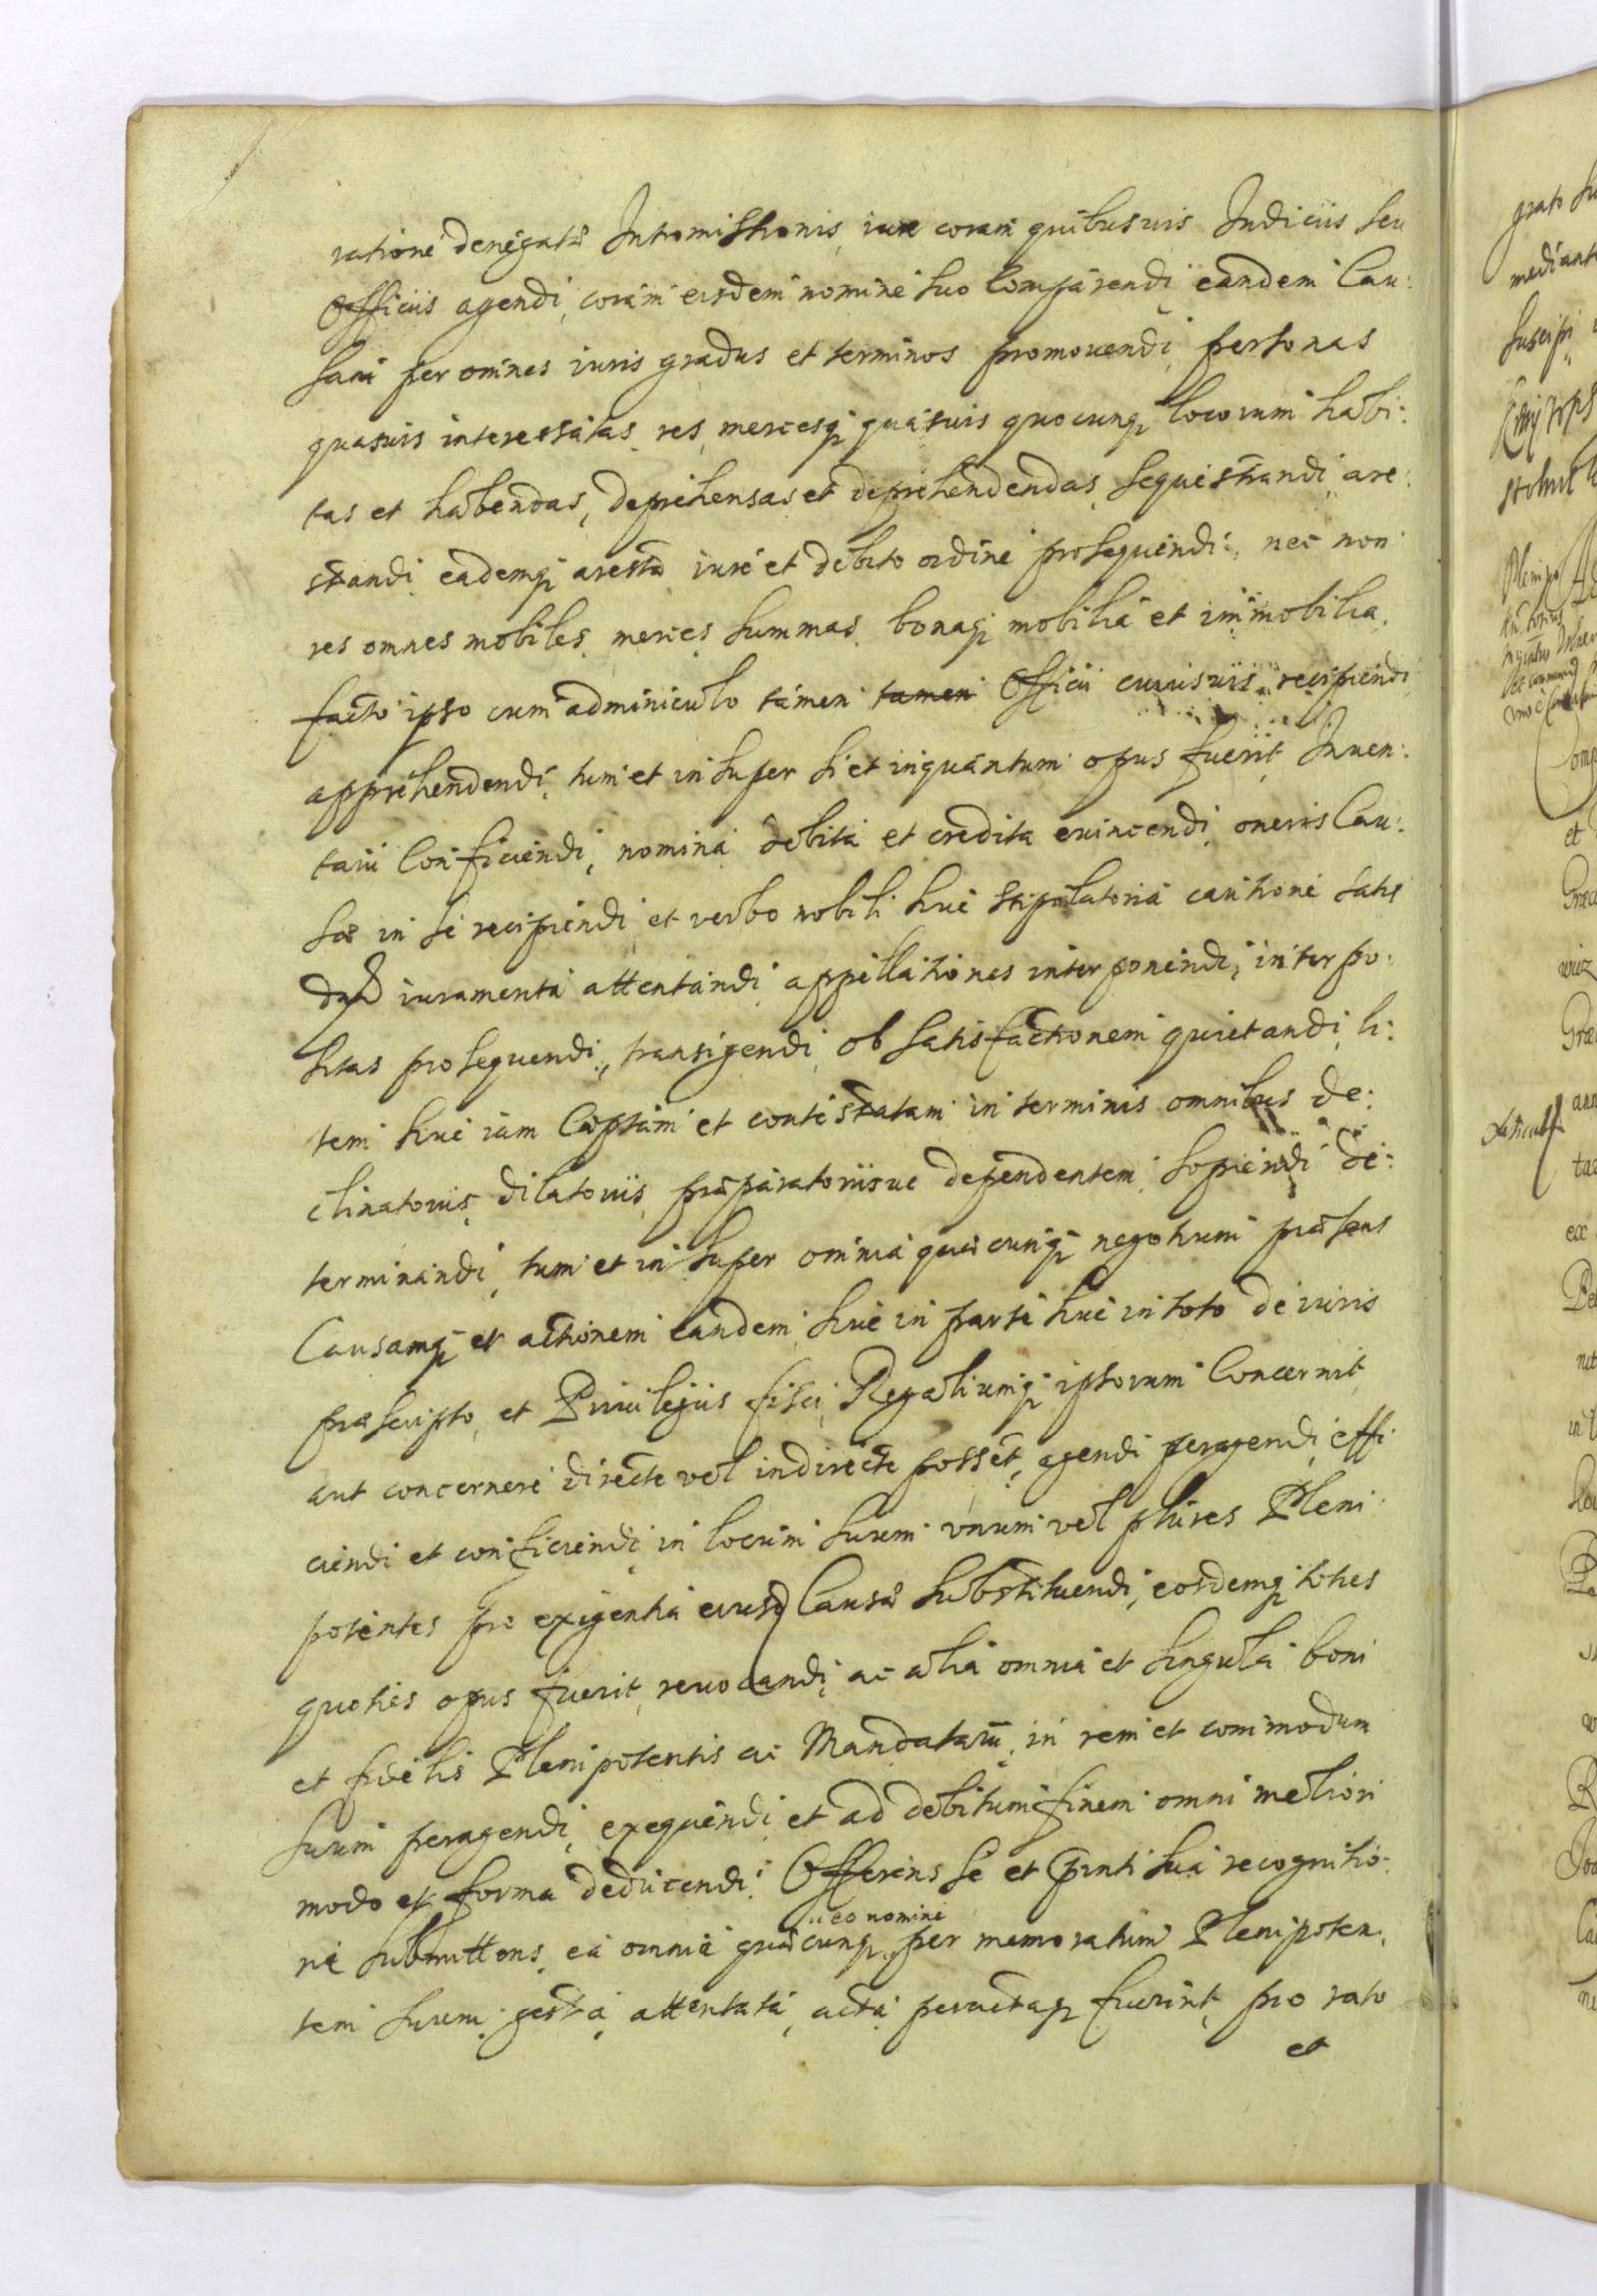 ratione denegatæ Intromissionis iure coram quibusuis Iudiciis seu
Officiis agendi, coram eisdem nomine suo Comparendi, eandem Cau:
sam per omnes iuris gradus et terminos promouendi, personas
quasuis interessatas, res, mercesq quasuis quocunq locorum habi:
tas et habendas, deprehensas et deprehendendas, sequestrandi, are:
standi, eademq aresta iure et debito ordine prosequendi, nec non
res omnes mobiles, merces, summas, bonaq mobilia et immobilia,
facto ipso cum adminiculo tamen tamen Officii cuiusuis recipiendi
apprehendendi, tum et insuper si et inquantum opus fuerit Inuen:
taria Conficiendi, nomina debita et credita euincendi, oneris Cau:
sæ in se recipiendi et verbo nobili siue stipulatoria cautione satis
iuramenta attentandi, appellationes interponendi, interpo:
sitas prosequendi, transigendi, ob satisfactionem quietandi, li:
tem siue iam Cæptam et contestatam in terminis omnibus de:
clinatoriis, dilatoriis, præparatoriisue dependentem, sopiendi, de:
terminandi, tum et insuper omnia quæcunq negotium præsens
Causamq et actionem eandem, siue in parte siue in toto de iuris
præscripto, et Priuilegiis fisci, Regaliumq ipsorum Concernit,
aut concernere directe vel indirecte posset, agendi, peragendi, effi
ciendi et conficiendi, in locum suum vnum vel plures Pleni
potentes pro exigentia eiusd Causæ substituendi, eosdemq toties
quoties opus fuerit, reuocandi, ac alia omnia et singula boni
et fidelis Plenipotentis ac Mandatarii, in rem et commodum
suum peragendi, exequendi, et ad debitum finem omni meliori
modo et forma deducendi. Offerens se et pnti sua recognitio:
ne submittens, ea omnia quæcunq eo nomine per memoratum Plenipoten,
tem suum, gesta, attentata, acta, peractaq fuerint, pro rato
et